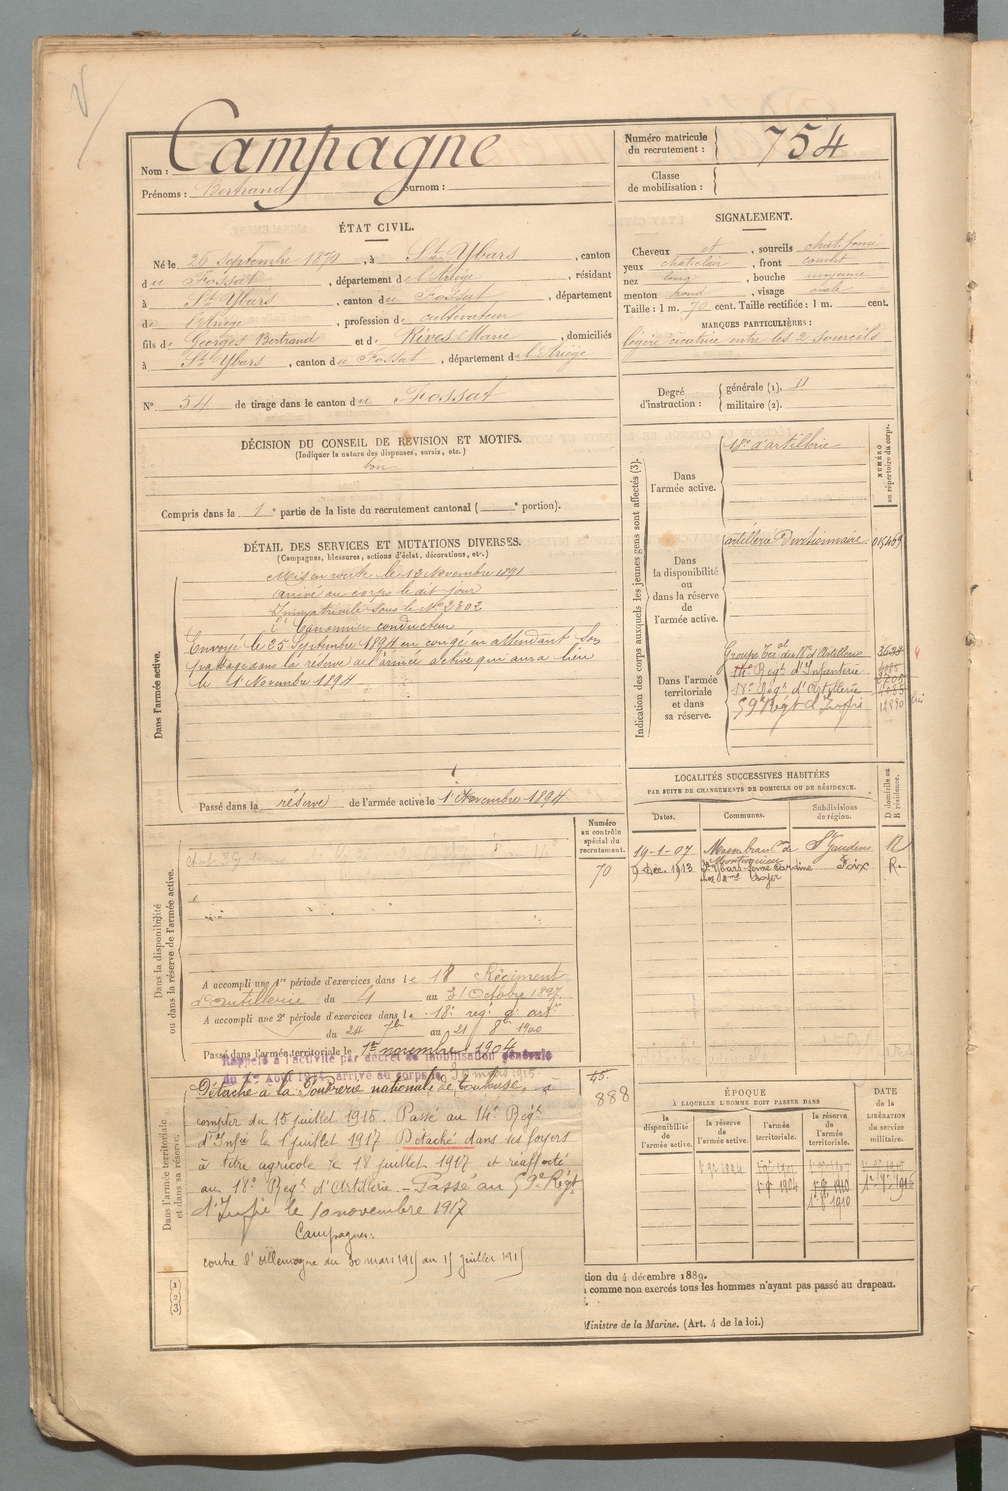 Nom : Campagne
Prénoms : Bertrand Surnom :
Numéro matricule du recrutement : 754
Classe de mobilisation :
ÉTAT CIVIL.
Né le 26 Septembre 1870, à St Ybars, canton
du Fossat, département de l'Ariège, résidant
à St Ybars, canton du Fossat, département
de l'Ariège, profession de cultivateur
fils de Georges Bertrand et de Rives Marie, domiciliés
à St Ybars, canton du Fossat, département de l'Ariège
N° 54 de tirage dans le canton du Fossat
SIGNALEMENT.
Cheveux et, sourcils chat foncé
yeux chat clair, front couvert
nez long, bouche moyenne
menton rond, visage ovale
Taille : 1 m. 70 cent. Taille rectifiée : 1 m. cent.
MARQUES PARTICULIÈRES :
légère cicatrice entre les 2 sourcils
Degré d'instruction : générale (1). II
militaire (2).
DÉCISION DU CONSEIL DE RÉVISION ET MOTIFS.
(Indiquer la nature des dispenses, sursis, etc.)
bon
Compris dans la 1e partie de la liste du recrutement cantonal ( e portion).
DÉTAIL DES SERVICES ET MUTATIONS DIVERSES.
(Campagnes, blessures, actions d'éclat, décorations, etc.)
Dans l'armée active.
Mis en route le 12 Novembre 1891
arrivé au corps le dit jour
Immatriculé sous le No 2302
2e Canonnier conducteur
Envoyé le 25 Septembre 1894 en congé en attendant son
passage dans la réserve de l'armée active qui aura lieu
le 1 Novembre 1894
Passé dans la réserve de l'armée active le 1 Novembre 1894
Indication des corps auxquels les jeunes gens sont affectés (3).
NUMÉRO au répertoire du corps.
Dans l'armée active.
18e d'artillerie
Dans la disponibilité ou dans la réserve de l'armée active.
artillerie Divisionnaire
Dans l'armée territoriale et dans sa réserve.
14e Regt d'Infanterie
18e Regt d'Artillerie
59e Régt d'Infie
LOCALITÉS SUCCESSIVES HABITÉES
PAR SUITE DE CHANGEMENTS DE DOMICILE OU DE RÉSIDENCE.
Dates.
Communes.
Subdivisions de région.
D. domicile ou R. résidence.
19-1-07 St Gaudens R
9 Déc. 1913 Foix R.
Numéro au contrôle spécial du recrutement.
70
Dans la disponibilité ou dans la réserve de l'armée active.
A accompli une 1re période d'exercices dans le 18 Régiment
d'artillerie du 4 au 31 Octobre 1897
A accompli une 2e période d'exercices dans le 18e reg. d'artie
du 24 7bre au 21 8bre 1900
Passé dans l'armée territoriale le 1er novembre 1904
Rappelé à l'activité par décret de mobilisation générale
du 1er Août 1914, arrivé au corps le 30 mars 1915
Dans l'armée territoriale et dans sa réserve.
Détaché à la Poudrerie nationale de Toulouse, à
compter du 15 juillet 1915. Passé au 14e Regt
d'Infie le 1 juillet 1917 Détaché dans ses foyers
à titre agricole le 18 juillet 1917 et réaffecté
au 18e Regt d'Artillerie - Passé au 59e Régt
d'Infie le 10 novembre 1917
Campagnes:
contre l'Allemagne du 30 mars 1915 au 15 juillet 1915
45.
888
ÉPOQUE
À LAQUELLE L'HOMME DOIT PASSER DANS
la disponibilité de l'armée active.
la réserve de l'armée active.
l'armée territoriale.
la réserve de l'armée territoriale.
DATE de la LIBÉRATION du service militaire.
(1)
(2)
(3)
tion du 4 décembre 1889.
comme non exercés tous les hommes n'ayant pas passé au drapeau.
Ministre de la Marine. (Art. 4 de la loi.)